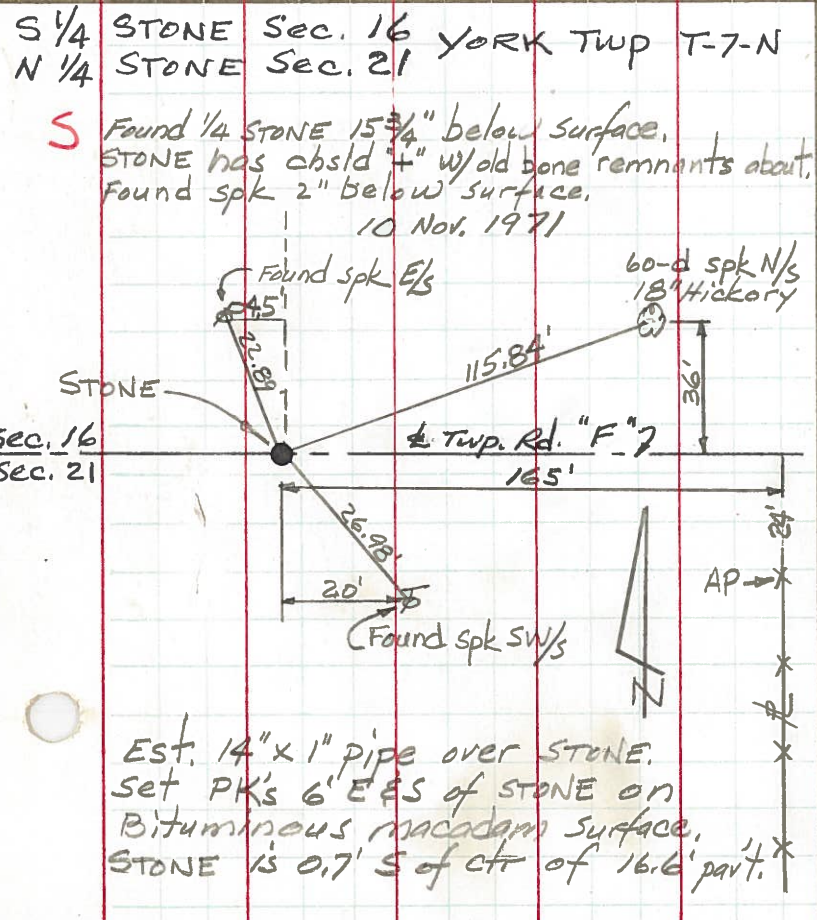 S 1/4 STONE Sec. 16 YORK TWP T-7-N
N 1/4 STONE Sec. 21
S
Found 1/4 STONE 15 3/4" below surface.
STONE has chsld "+" w/ old bone remnants about.
Found spk 2" below surface.
10 Nov. 1971
Found spk E/s
60-d spk N/s
18" Hickory
4.5'
22.89
115.84'
36'
STONE
Sec. 16
℄ Twp. Rd. "F"
Sec. 21
165'
26.98'
24'
20'
AP
Found spk SW/s
N
℄
Est. 14" x 1" pipe over STONE.
Set PK's 6' E & S of STONE on
Bituminous macadam surface.
STONE is 0.7' S of ctr of 16.6' pav't.